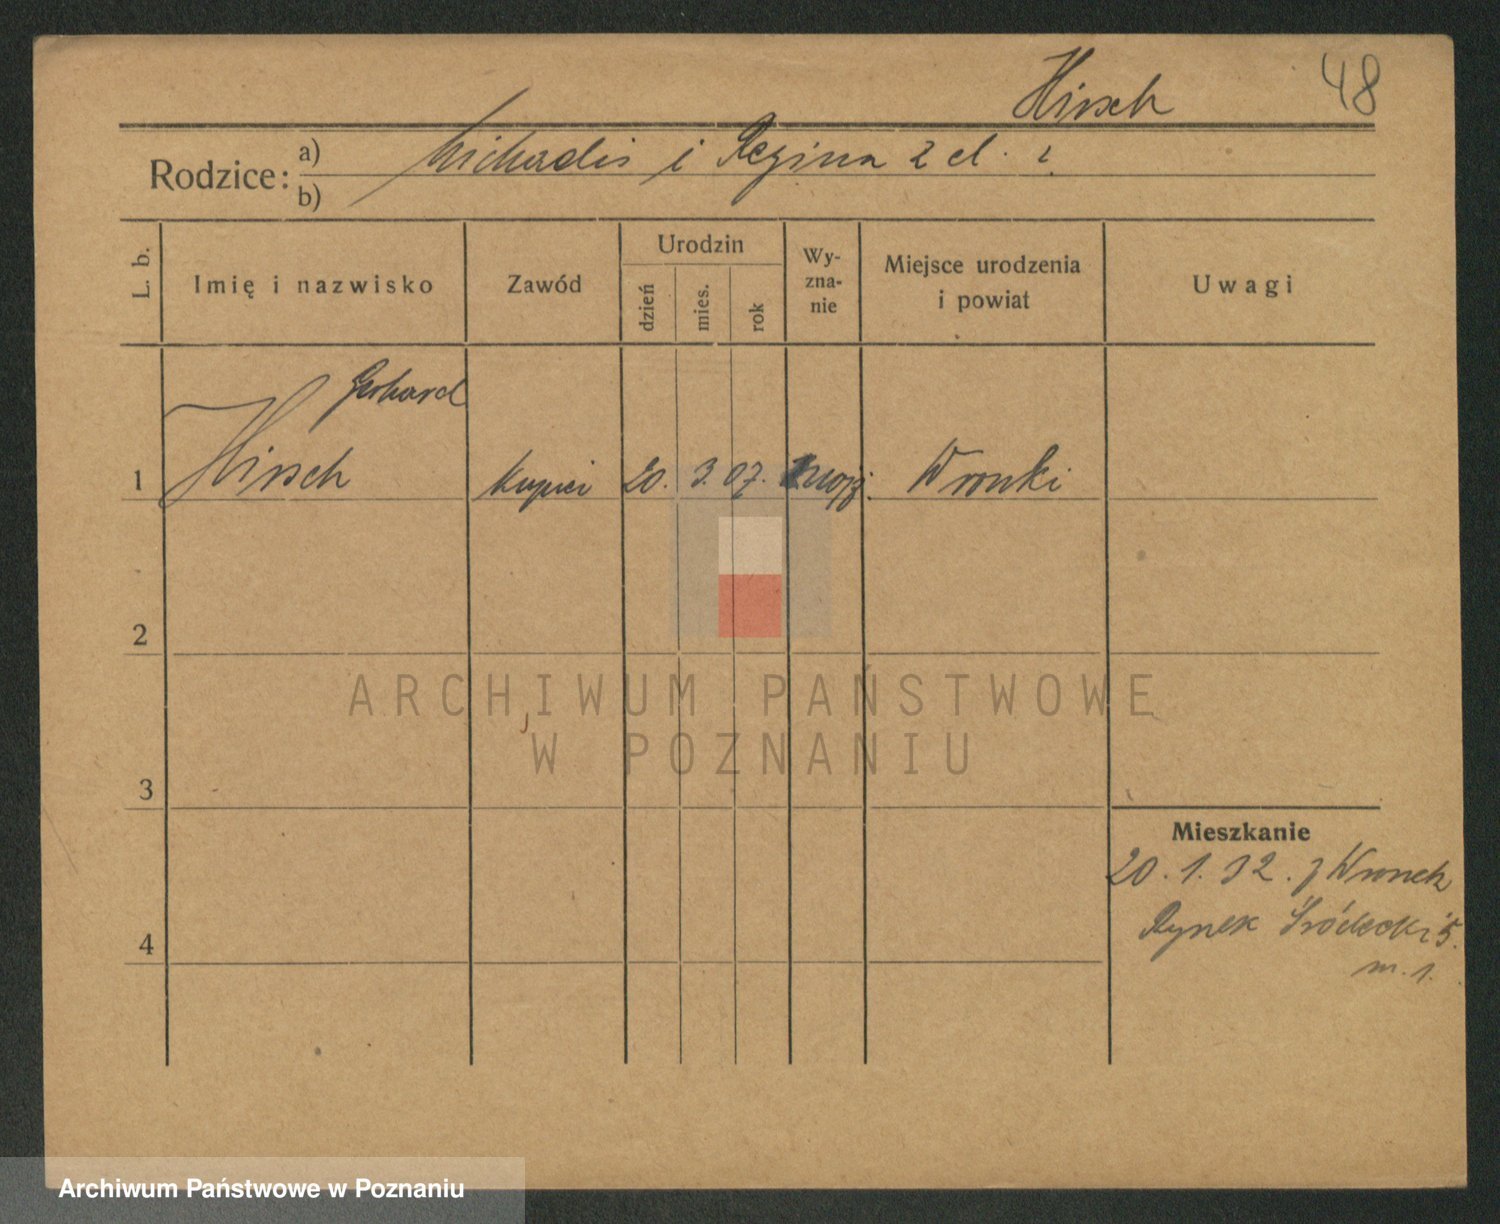 Hirsch 48
Rodzice: a) Michaelis i Regina z d.
b)
L. b.
Imię i nazwisko
Zawód
Urodzin
dzień
mies.
rok
Wy-
zna-
nie
Miejsce urodzenia
i powiat
Uwagi
Gerhard
1 Hirsch kupiec 20. 3. 07. mojż. Wronki
2
ARCHIWUM PAŃSTWOWE
W POZNANIU
3
Mieszkanie
20.1.32. z Wronek
Rynek Śródecki 5.
m. 1.
4
Archiwum Państwowe w Poznaniu